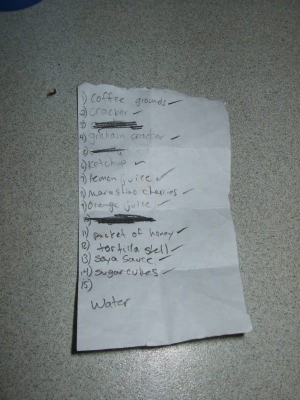 1) Coffee grounds ✓
2) Cracker ✓
3)
4) graham cracker ✓
5)
6) Ketchup ✓
7) lemon juice ✓
8) maraschino cherries ✓
9) Orange juice ✓
10)
11) packet of honey ✓
12) tortilla shell ✓
13) soya sauce ✓
14) sugar cubes ✓
15)
Water